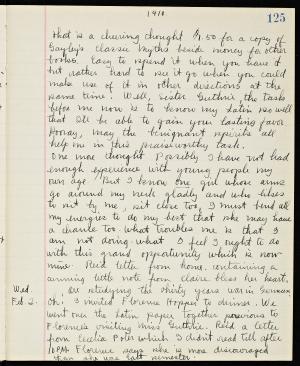 1910
125
that is a cheering thought $1.50 for a copy of
Gayley's Classic Myths beside money for other
books. Easy to spend it when you have it
but rather hard to see it go when you could
make use of it in other directions at the
same time. Well, Sister Guthrie, the task
before me now is to know my Latin so well
that I'll be able to gain your lasting favor
Horay, may the benignant spirits all
help me in this praiseworthy task.
One more thought Possibly I have not had
enough experience with young people my
own age. But I know one girl whose arms
go around my neck gladly and who likes
to sit by me, sit close too, I must bend all
my energies to do my best that she may have
a chance too. What troubles me is that I
am not doing what I feel I ought to do
with this grand opportunity which is now
mine. Rec'd letter from home, containing a
cunning little note from Claire bless her heart.
Wed.
Feb 2.
Am studying the thirty years war in German
I invited Florence Hopper to dinner. We
went over the Latin paper together previous to
Florence's visiting Miss Guthrie. Rec'd a letter
from Cecelia Poler which I didn't read till after
10 P.M. Florence says she is more discouraged
than she was last semester